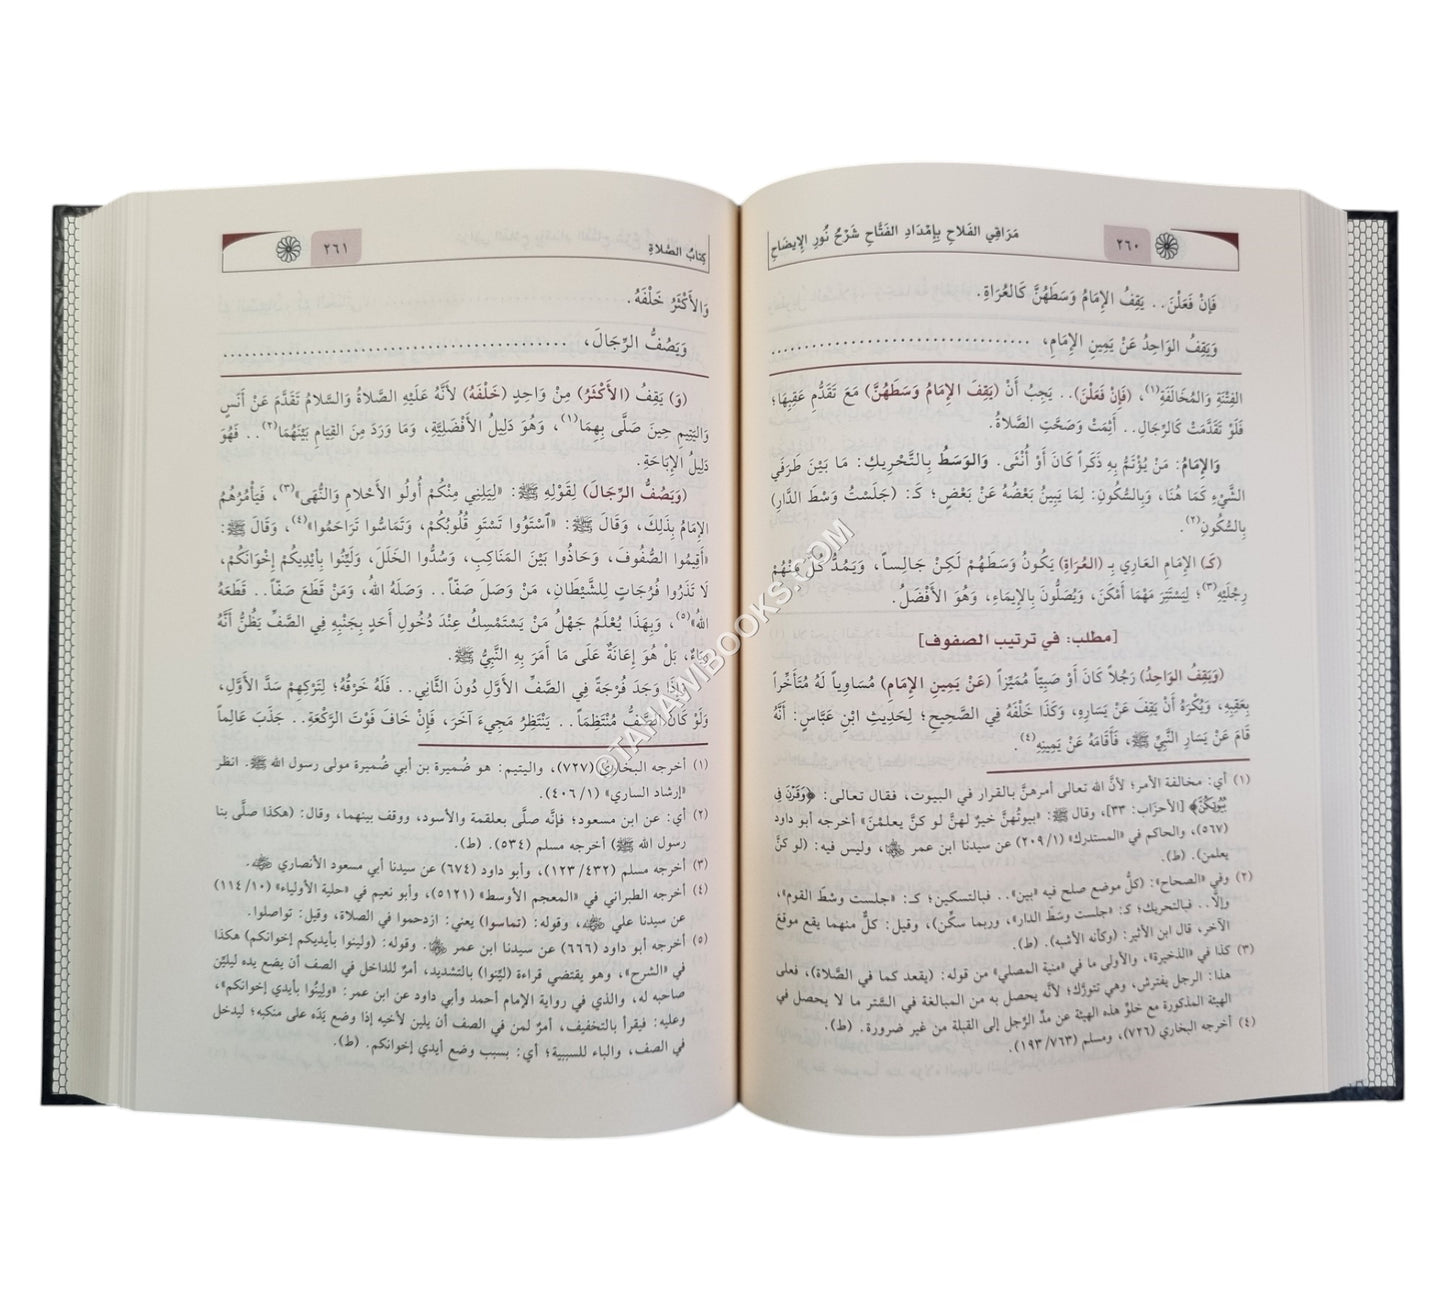 ٢٦٠
مَرَاقِي الفَلَاحِ بِإِمْدَادِ الفَتَّاحِ شَرْحُ نُورِ الإِيضَاحِ
فَإِنْ فَعَلْنَ.. يَقِفُ الإِمَامُ وَسَطَهُنَّ كَالعُرَاةِ.
وَيَقِفُ الوَاحِدُ عَنْ يَمِينِ الإِمَامِ، ..................................
الفِتْنَةِ وَالمُخَالَفَةِ(١)، (فَإِنْ فَعَلْنَ).. يَجِبُ أَنْ (يَقِفَ الإِمَامُ وَسَطَهُنَّ) مَعَ تَقَدُّمِ عَقِبِهَا؛
فَلَوْ تَقَدَّمَتْ كَالرِّجَالِ.. أَثِمَتْ وَصَحَّتِ الصَّلاةُ.
وَالإِمَامُ: مَنْ يُؤْتَمُّ بِهِ ذَكَراً كَانَ أَوْ أُنْثَى. وَالوَسَطُ بِالتَّحْرِيكِ: مَا بَيْنَ طَرَفَيِ
الشَّيْءِ كَمَا هُنَا، وَبِالسُّكُونِ: لِمَا يَبِينُ بَعْضُهُ عَنْ بَعْضٍ؛ كَـ: (جَلَسْتُ وَسْطَ الدَّارِ)
بِالسُّكُونِ(٢).
(كَـ) الإِمَامِ العَارِي بِـ (العُرَاةِ) يَكُونُ وَسَطَهُمْ لَكِنْ جَالِساً، وَيَمُدُّ كُلٌّ مِنْهُمْ
رِجْلَيْهِ(٣)؛ لِيَسْتَتِرَ مَهْمَا أَمْكَنَ، وَيُصَلُّونَ بِالإِيمَاءِ، وَهُوَ الأَفْضَلُ.
[مطلب: في ترتيب الصفوف]
(وَيَقِفُ الوَاحِدُ) رَجُلاً كَانَ أَوْ صَبِيّاً مُمَيِّزاً (عَنْ يَمِينِ الإِمَامِ) مُسَاوِياً لَهُ مُتَأَخِّراً
بِعَقِبِهِ، وَيُكْرَهُ أَنْ يَقِفَ عَنْ يَسَارِهِ، وَكَذَا خَلْفَهُ فِي الصَّحِيحِ؛ لِحَدِيثِ ابْنِ عَبَّاسٍ: أَنَّهُ
قَامَ عَنْ يَسَارِ النَّبِيِّ ﷺ، فَأَقَامَهُ عَنْ يَمِينِهِ(٤).
(١) أي: مخالفة الأمر؛ لأنَّ الله تعالى أمرهنَّ بالقرار في البيوت، فقال تعالى: ﴿وَقَرْنَ فِي
بُيُوتِكُنَّ﴾ [الأحزَاب: ٣٣]، وقال ﷺ: «بيوتُهنَّ خيرٌ لهنَّ لو كنَّ يعلمْنَ» أخرجه أبو داود
(٥٦٧)، والحاكم في «المستدرك» (٢٠٩/١) عن سيدنا ابن عمر ﷠، وليس فيه: (لو كنَّ
يعلمن). (ط).
(٢) وفي «الصحاح»: (كلُّ موضع صلح فيه «بين».. فبالتسكين؛ كـ: «جلست وسْطَ القوم»،
وإلَّا.. فبالتحريك؛ كـ: «جلست وسَطَ الدار»، وربما سكِّن)، وقيل: كلٌّ منهما يقع موقعَ
الآخر، قال ابن الأثير: (وكأنه الأشبه). (ط).
(٣) كذا في «الذخيرة»، والأولى ما في «منية المصلي» من قوله: (يقعد كما في الصَّلاة)، فعلى
هذا: الرجل يفترش، وهي تتورَّك؛ لأنَّه يحصل به من المبالغة في السَّتر ما لا يحصل في
الهيئة المذكورة مع خلوِّ هذه الهيئة عن مدِّ الرِّجل إلى القبلة من غير ضرورة. (ط).
(٤) أخرجه البخاري (٧٢٦)، ومسلم (١٩٣/٧٦٣).
كِتَابُ الصَّلَاةِ
٢٦١
وَالأَكْثَرُ خَلْفَهُ.
وَيَصُفُّ الرِّجَالَ، ................................................
(وَ) يَقِفُ (الأَكْثَرُ) مِنْ وَاحِدٍ (خَلْفَهُ) لأَنَّهُ عَلَيْهِ الصَّلاةُ وَالسَّلامُ تَقَدَّمَ عَنْ أَنَسٍ
وَاليَتِيمِ حِينَ صَلَّى بِهِمَا(١)، وَهُوَ دَلِيلُ الأَفْضَلِيَّةِ، وَمَا وَرَدَ مِنَ القِيَامِ بَيْنَهُمَا(٢).. فَهُوَ
دَلِيلُ الإِبَاحَةِ.
(وَيَصُفُّ الرِّجَالَ) لِقَوْلِهِ ﷺ: «لِيَلِنِي مِنْكُمْ أُولُو الأَحْلامِ وَالنُّهَى»(٣)، فَيَأْمُرُهُمُ
الإِمَامُ بِذَلِكَ، وَقَالَ ﷺ: «ٱسْتَوُوا تَسْتَوِ قُلُوبُكُمْ، وَتَمَاسُّوا تَرَاحَمُوا»(٤)، وَقَالَ ﷺ:
«أَقِيمُوا الصُّفُوفَ، وَحَاذُوا بَيْنَ المَنَاكِبِ، وَسُدُّوا الخَلَلَ، وَلَيِّنُوا بِأَيْدِيكُمْ إِخْوَانَكُمْ،
لَا تَذَرُوا فُرُجَاتٍ لِلشَّيْطَانِ، مَنْ وَصَلَ صَفّاً.. وَصَلَهُ اللهُ، وَمَنْ قَطَعَ صَفّاً.. قَطَعَهُ
اللهُ»(٥)، وَبِهَذَا يُعْلَمُ جَهْلُ مَنْ يَسْتَمْسِكُ عِنْدَ دُخُولِ أَحَدٍ بِجَنْبِهِ فِي الصَّفِّ يَظُنُّ أَنَّهُ
رِيَاءٌ، بَلْ هُوَ إِعَانَةٌ عَلَى مَا أَمَرَ بِهِ النَّبِيُّ ﷺ.
وَإِذَا وَجَدَ فُرْجَةً فِي الصَّفِّ الأَوَّلِ دُونَ الثَّانِي.. فَلَهُ خَرْقُهُ؛ لِتَرْكِهِمْ سَدَّ الأَوَّلِ،
وَلَوْ كَانَ الصَّفُّ مُنْتَظِماً.. يَنْتَظِرُ مَجِيءَ آخَرَ، فَإِنْ خَافَ فَوْتَ الرَّكْعَةِ.. جَذَبَ عَالِماً
(١) أخرجه البخاري (٧٢٧)، واليتيم: هو ضُميرة بن أبي ضُميرة مولى رسول الله ﷺ. انظر
«إرشاد الساري» (٤٠٦/١).
(٢) أي: عن ابن مسعود؛ فإنَّه صلَّى بعلقمة والأسود، ووقف بينهما، وقال: (هكذا صلَّى بنا
رسول الله ﷺ) أخرجه مسلم (٥٣٤). (ط).
(٣) أخرجه مسلم (١٢٣/٤٣٢)، وأبو داود (٦٧٤) عن سيدنا أبي مسعود الأنصاري ﷜.
(٤) أخرجه الطبراني في «المعجم الأوسط» (٥١٢١)، وأبو نعيم في «حلية الأولياء» (١١٤/١٠)
عن سيدنا علي ﷜، وقوله: (تماسوا) يعني: ازدحموا في الصلاة، وقيل: تواصلوا.
(٥) أخرجه أبو داود (٦٦٦) عن سيدنا ابن عمر ﷠. وقوله: (ولينوا بأيديكم إخوانكم) هكذا
في «الشرح»، وهو يقتضي قراءة (ليِّنوا) بالتشديد، أمرٌ للداخل في الصف أن يضع يده ليليِّن
صاحبه له، والذي في رواية الإمام أحمد وأبي داود عن ابن عمر: «ولِينُوا بأيدي إخوانكم»،
وعليه: فيقرأ بالتخفيف، أمرٌ لمن في الصف أن يلين لأخيه إذا وضع يَدَه على منكبه؛ ليدخل
في الصف، والباء للسببية؛ أي: بسبب وضع أيدي إخوانكم. (ط).
©TAHAMIBOOKS.COM